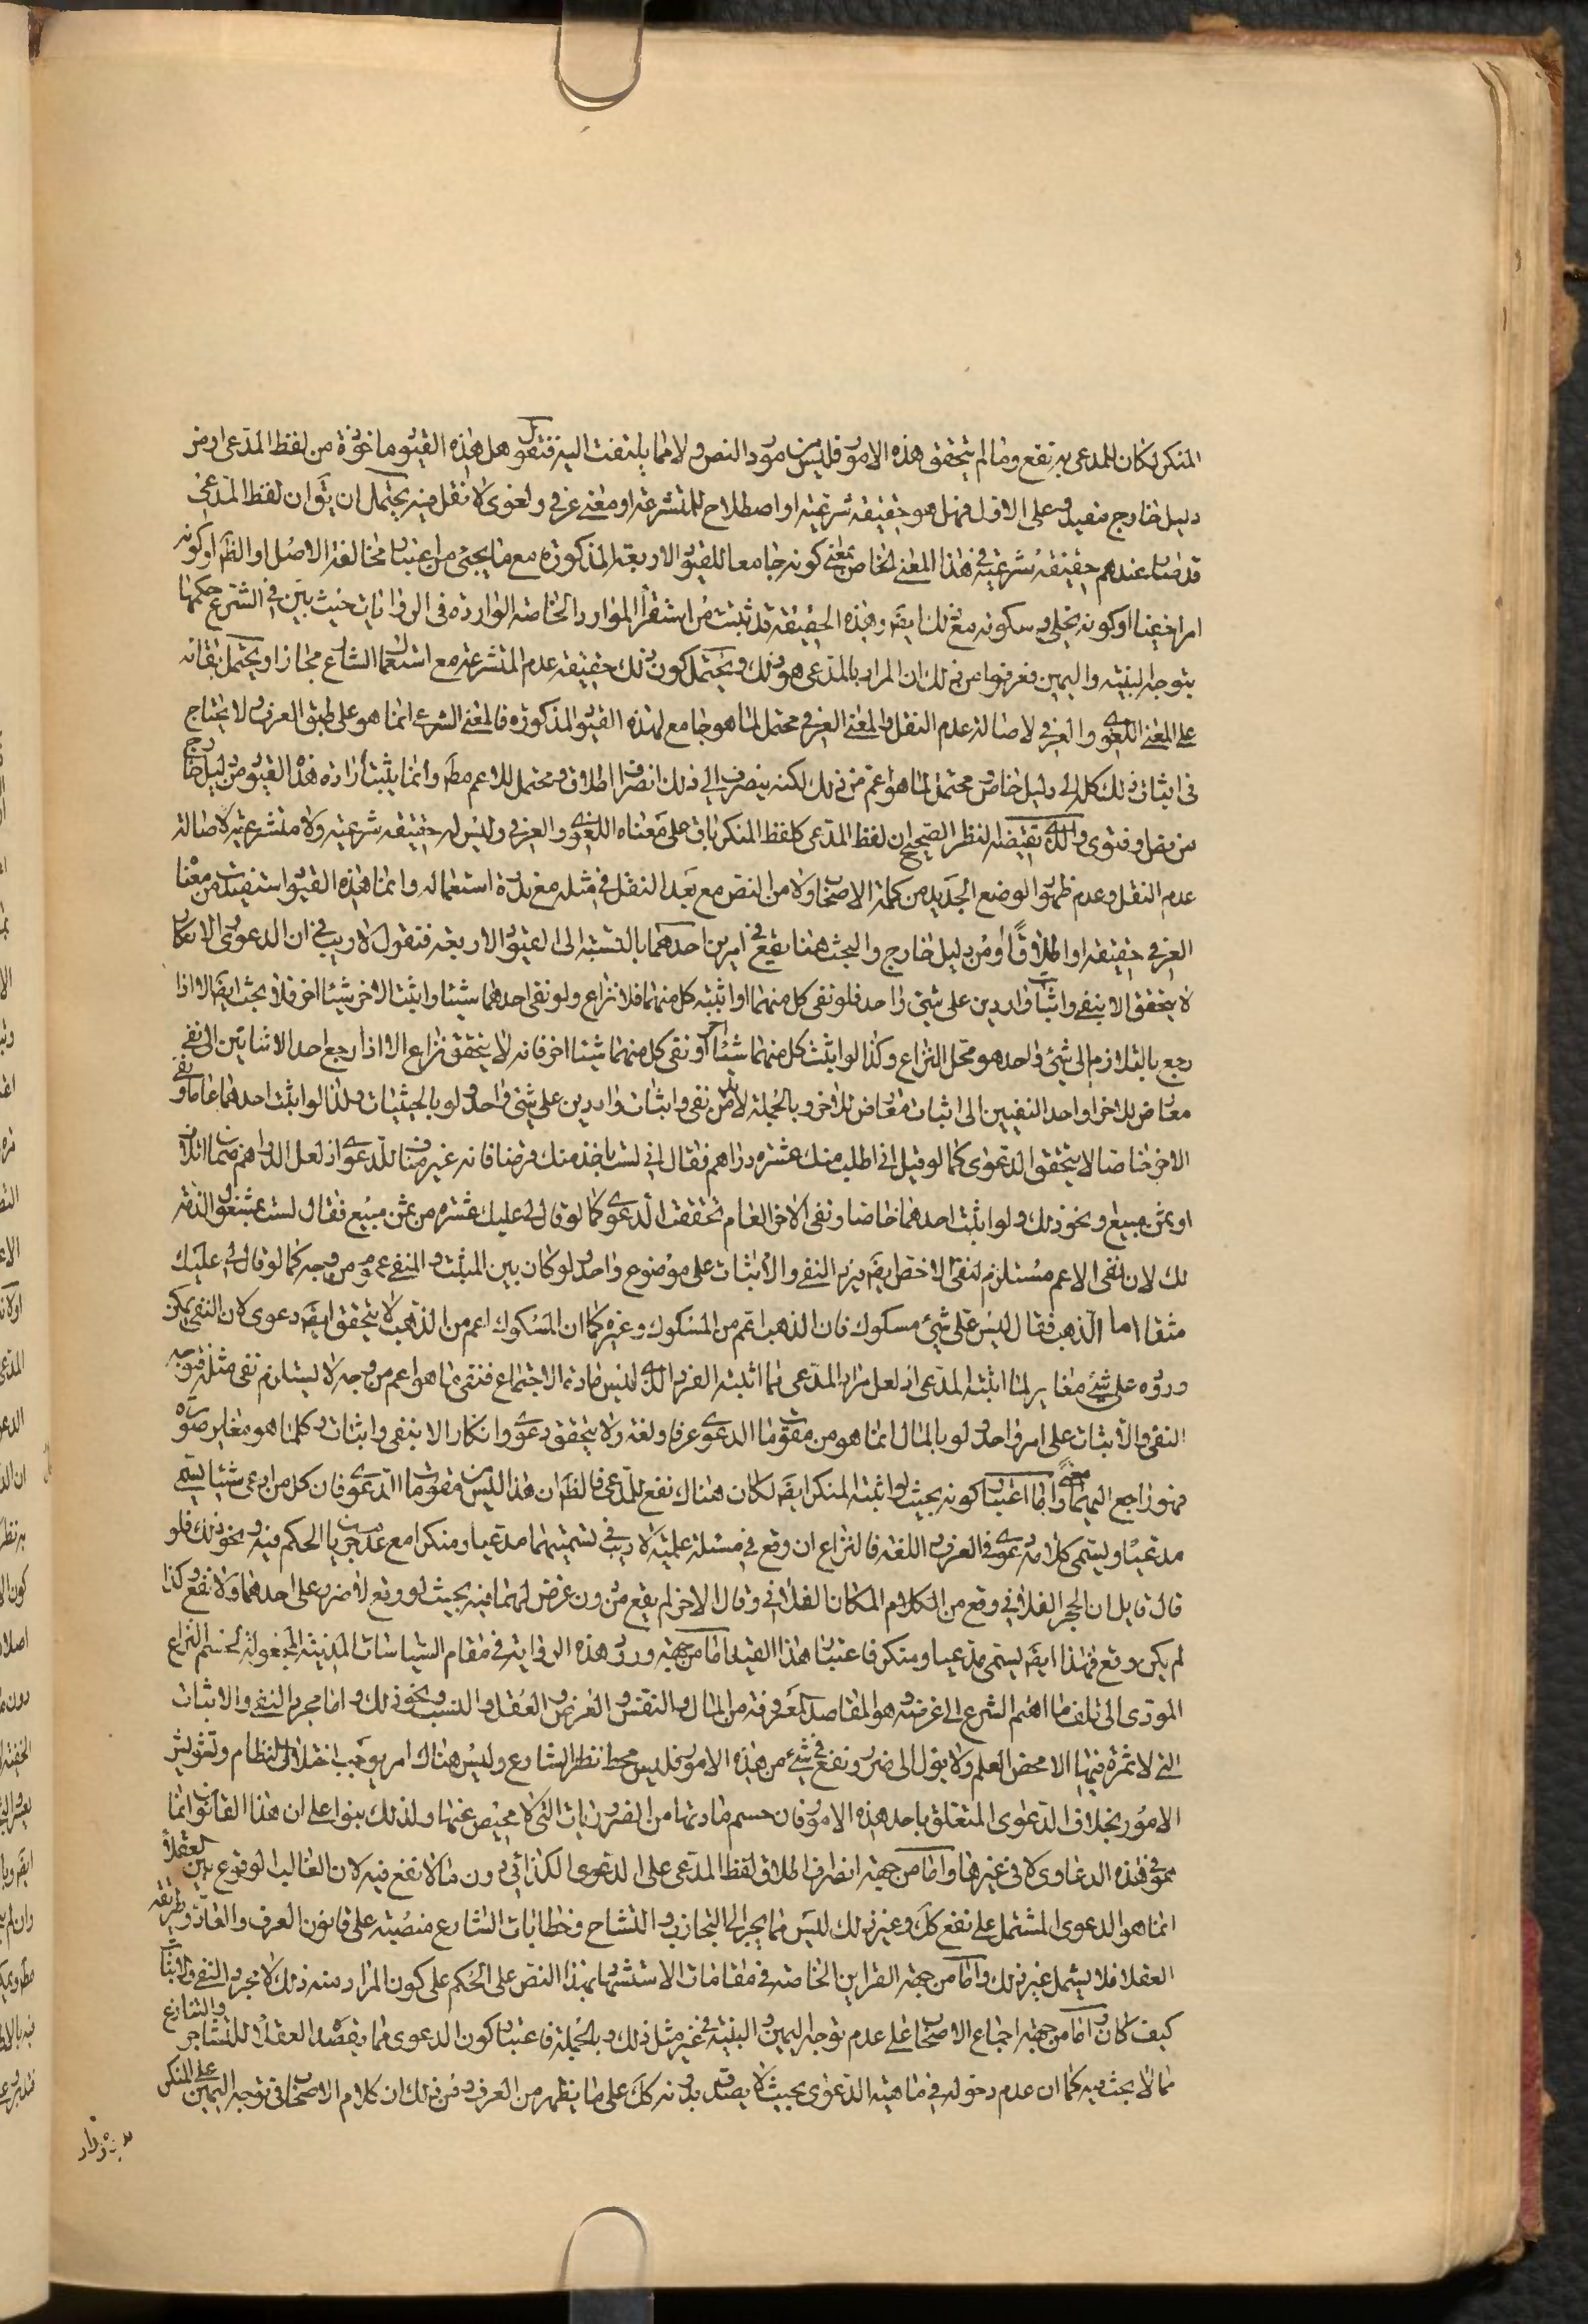 المنكر لكان للمدعى به نفع وما لم يتحقق هذه الامور فليس من مورد النص ولا مما يلتفت اليه فنقول هل هذه القيود ماخوذة من لفظ المدعى او من
دليل خارج مفيد وعلى الاول فهل هو حقيقة شرعية او اصطلاح للمتشرعة او معنى عرفي ولغوي لا نقل فيه يحتمل ان يقال ان لفظ المدعي
قد صار عندهم حقيقة شرعية في هذا المعنى الخاص بمعنى كونه جامعا للقيود الاربعة المذكورة مع ما يجئ من اعتبار مخالفة الاصل او الظم او كونه
امرا خفيا او كونه يخلى وسكوته مع ذلك ايضم وهذه الحقيقة قد ثبتت من استقراء الموارد الخاصة الواردة في الروايات حيث بين في الشرع حكمها
بتوجه البينة واليمين فعرفوا من ذلك ان المراد بالمدعى هو ذلك ويحتمل كون ذلك حقيقة عدم المتشرعة مع استعمال الشارع مجازا ويحتمل بقائه
على المعنى اللغوي والعرفي لاصالة عدم النقل والمعنى العرفي محتمل لما هو جامع لهذه القيود المذكورة فالمعنى الشرعي انما هو على طبق العرف ولا يحتاج
في اثبات ذلك كله الى دليل خاص ومحتمل لما هو اعم من ذلك لكنه ينصرف الى ذلك انصراف اطلاق ومحتمل للاعم مطم وانما يثبت ارادة هذه القيود من دليل خارج
من نص او فتوى والذي يقتضيه النظر الصحيح ان لفظ المدعى كلفظ المنكر باق على معناه اللغوي والعرفي وليس له حقيقة شرعية ولا متشرعية لاصالة
عدم النقل وعدم ظهور الوضع الجديد من كلمة الاصحاب ولا من النص مع بعد النقل في مثله مع ندرة استعماله وانما هذه القيود استفيدت من معناه
العرفي حقيقة او اطلاقا او من دليل خارج والبحث هنا يقع في امرين احدهما بالنسبة الى القيود الاربعة فنقول لا ريب في ان الدعوى والانكار
لا يتحقق الا بنفي واثبات واردين على شئ واحد فلو نفى كل منهما او اثبته كل منهما فلا نزاع ولو نفى احدهما شيئا واثبت الاخر شيئا اخر فلا بحث ايضم الا اذا
رجع بالتلازم الى شئ واحد هو محل النزاع وكذا لو اثبت كل منهما شيئا اخر او نفى كل منهما شيئا اخر فانه لا يتحقق نزاع الا اذا رجع احد الاثباتين الى نفي
معارض للاخر او احد النفيين الى اثبات معارض للاخر وبالجملة لا بد من نفي واثبات واردين على شئ واحد ولو بالحيثيات ولذا لو اثبت احدهما عاما ونفى
الاخر خاصا لا يتحقق الدعوى كما لو قيل اني اطلب منك عشرة دراهم فقال اني لست باخذ منك قرضا فانه غير مناف للدعوى اذ لعل الدراهم ضمان اتلاف
او ثمن مبيع ونحو ذلك ولو اثبت احدهما خاصا ونفى الاخر العام تحققت الدعوى كما لو قال لي عليك عشرة من ثمن مبيع فقال لست بمشغول الذمة
لك لان نفي الاعم مستلزم لنفي الاخص ايضم فيرد النفي والاثبات على موضوع واحد ولو كان بين المثبت والمنفي عموم من وجه كما لو قال لي عليك
مثقالا من الذهب فقال ليس علي شئ مسكوك فان الذهب اعم من المسكوك وغيره كما ان المسكوك اعم من الذهب لا يتحقق ايضم دعوى لان النفي يمكن
وروده على شئ مغاير لما اثبته المدعي اذ لعل مراد المدعى مما اثبته الفرد الذي ليس مادة الاجتماع فنفي ما هو اعم من وجه لا يستلزم نفي مثله فتوجه
النفي والاثبات على امر واحد ولو بالمال انما هو من مقومات الدعوى عرفا ولغة ولا يتحقق دعوى وانكار الا بنفي واثبات وكلما هو مغاير صورة
فهو راجع اليهما معنى واما اعتبار كونه بحيث لو اثبته المنكر ايضم لكان هناك نفع للمدعى فالظم ان هذا ليس من مقومات الدعوى فان كل من ادعى شيئا يسمى
مدعيا ويسمى كلامه دعوى في العرف واللغة فالنزاع ان وقع في مسئلة علمية لا ريب في تسميتهما مدعيا ومنكرا مع عدم جريان الحكم فيه ونحو ذلك فلو
قال قايل ان الحجر الفلاني وقع من الكلام المكان الفلاني وقال الاخر لم يقع من دون غرض لهما فيه بحيث لو وقع لا ضرر على احدهما ولا نفع وكذا
لم يكن وقع فهذا ايضم يسمى مدعيا ومنكر فاعتبار هذا القيد اما من جهة ورود هذه الرواية في مقام السياسات المدينة المجعولة لحسم النزاع
المودى الى تلف ما اهتم الشرع الى غرضه وهو المقاصد المعروفة من المال والنفس والعرض والعقل والنسب ونحو ذلك واما مجرد النفي والاثبات
التي لا ثمرة فيها الا محض العلم ولا يؤل الى ضرر ونفع في شئ من هذه الامور فليس محط نظر الشارع وليس هناك امر يوجب اختلال النظام وتشويش
الامور بخلاف الدعوى المتعلق باحد هذه الامور فان حسم مادتها من الضروريات التي لا محيص عنها ولذلك بنوا على ان هذا القانون انما
هو في هذه الدعاوى لا في غيرها واما من جهة انصراف اطلاق لفظ المدعى على الدعوى الكذائي دون ما لا نفع فيه لان الغالب الوقوع بين العقلاء
انما هو الدعوى المشتمل على نفع كك وغير ذلك ليس مما يجر الى التجاذب والتشاح وخطابات الشارع منصبة على قانون العرف والعادة وطريقة
العقلاء فلا يشمل غير ذلك واما من جهة القراين الخاصة في مقامات الاستشهاد بهذا النص على الحكم على كون المراد منه ذلك لا مجرد النفي والاثبات
كيف كان واما من جهة اجماع الاصحاب على عدم توجه اليمين والبينة في غير مثل ذلك وبالجملة فاعتبار كون الدعوى مما يقصد العقلاء للتشاجر والتنازع
مما لا بحث فيه كما ان عدم دخوله في ماهية الدعوى بحيث لا يصدق بدونه كك على ما يظهر من العرف ومن ذلك ان كلام الاصحاب في توجه اليمين على المنكر